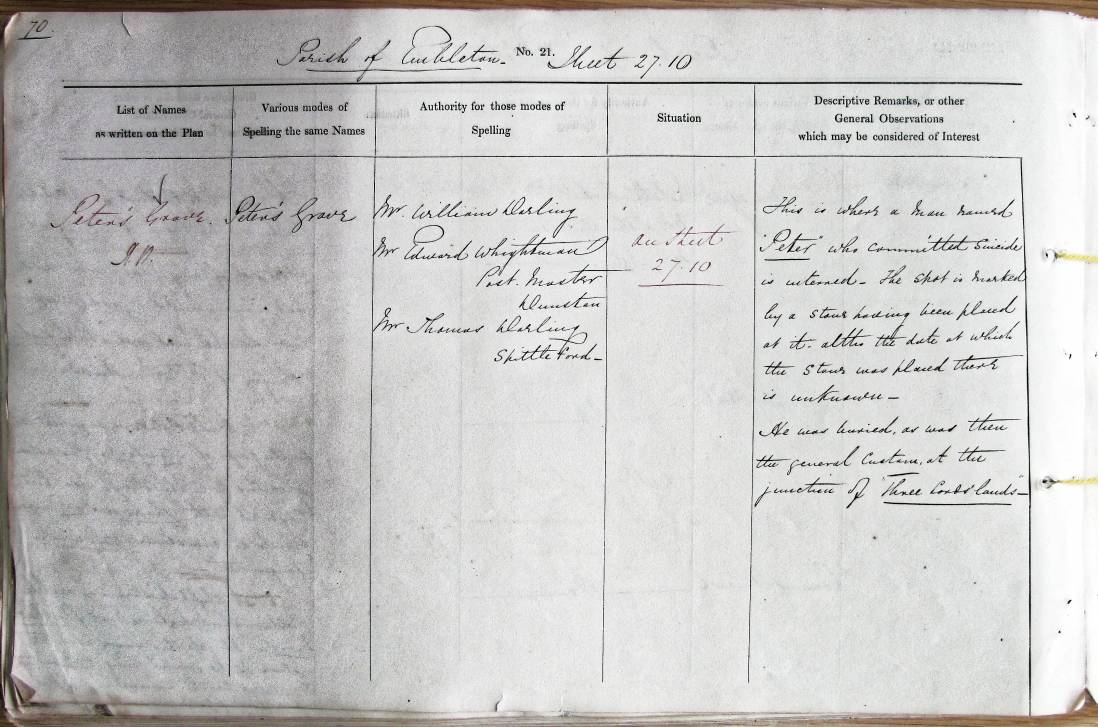 70
Parish of Embleton. No. 21. Sheet 27.10
List of Names
as written on the Plan
Various modes of
Spelling the same Names
Authority for those modes of
Spelling
Situation
Descriptive Remarks, or other
General Observations
which may be considered of Interest
Peter's Grave.
Peter's Grave
Mr. William Darling
Mr Edward Whightman
Post. Master
Dunstan
Mr Thomas Darling
Spittle Ford-
on Sheet
27.10
This is where a Man named
"Peter" who committed Suicide
is interred - The spot is marked
by a Stone having been placed
at it. altho the date at which
the Stone was placed there
is unknown -
He was buried, as was then
the general Custom, at the
junction of "Three Lords' lands" -